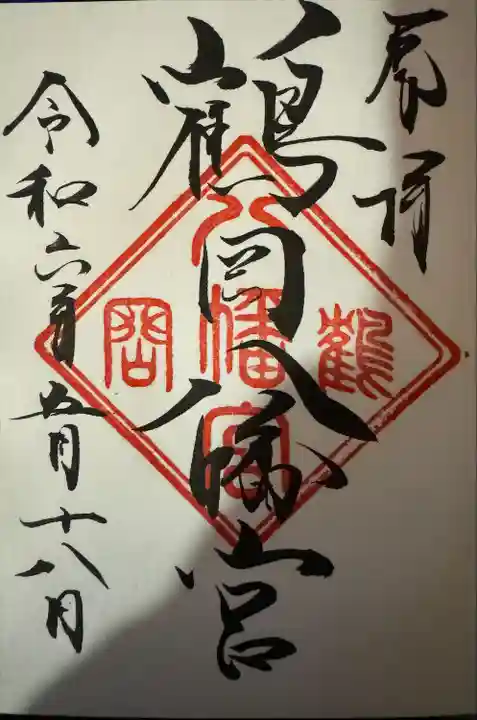 奉拝
鶴岡八幡宮
令和六年五月十八日
鶴
八幡宮
岡